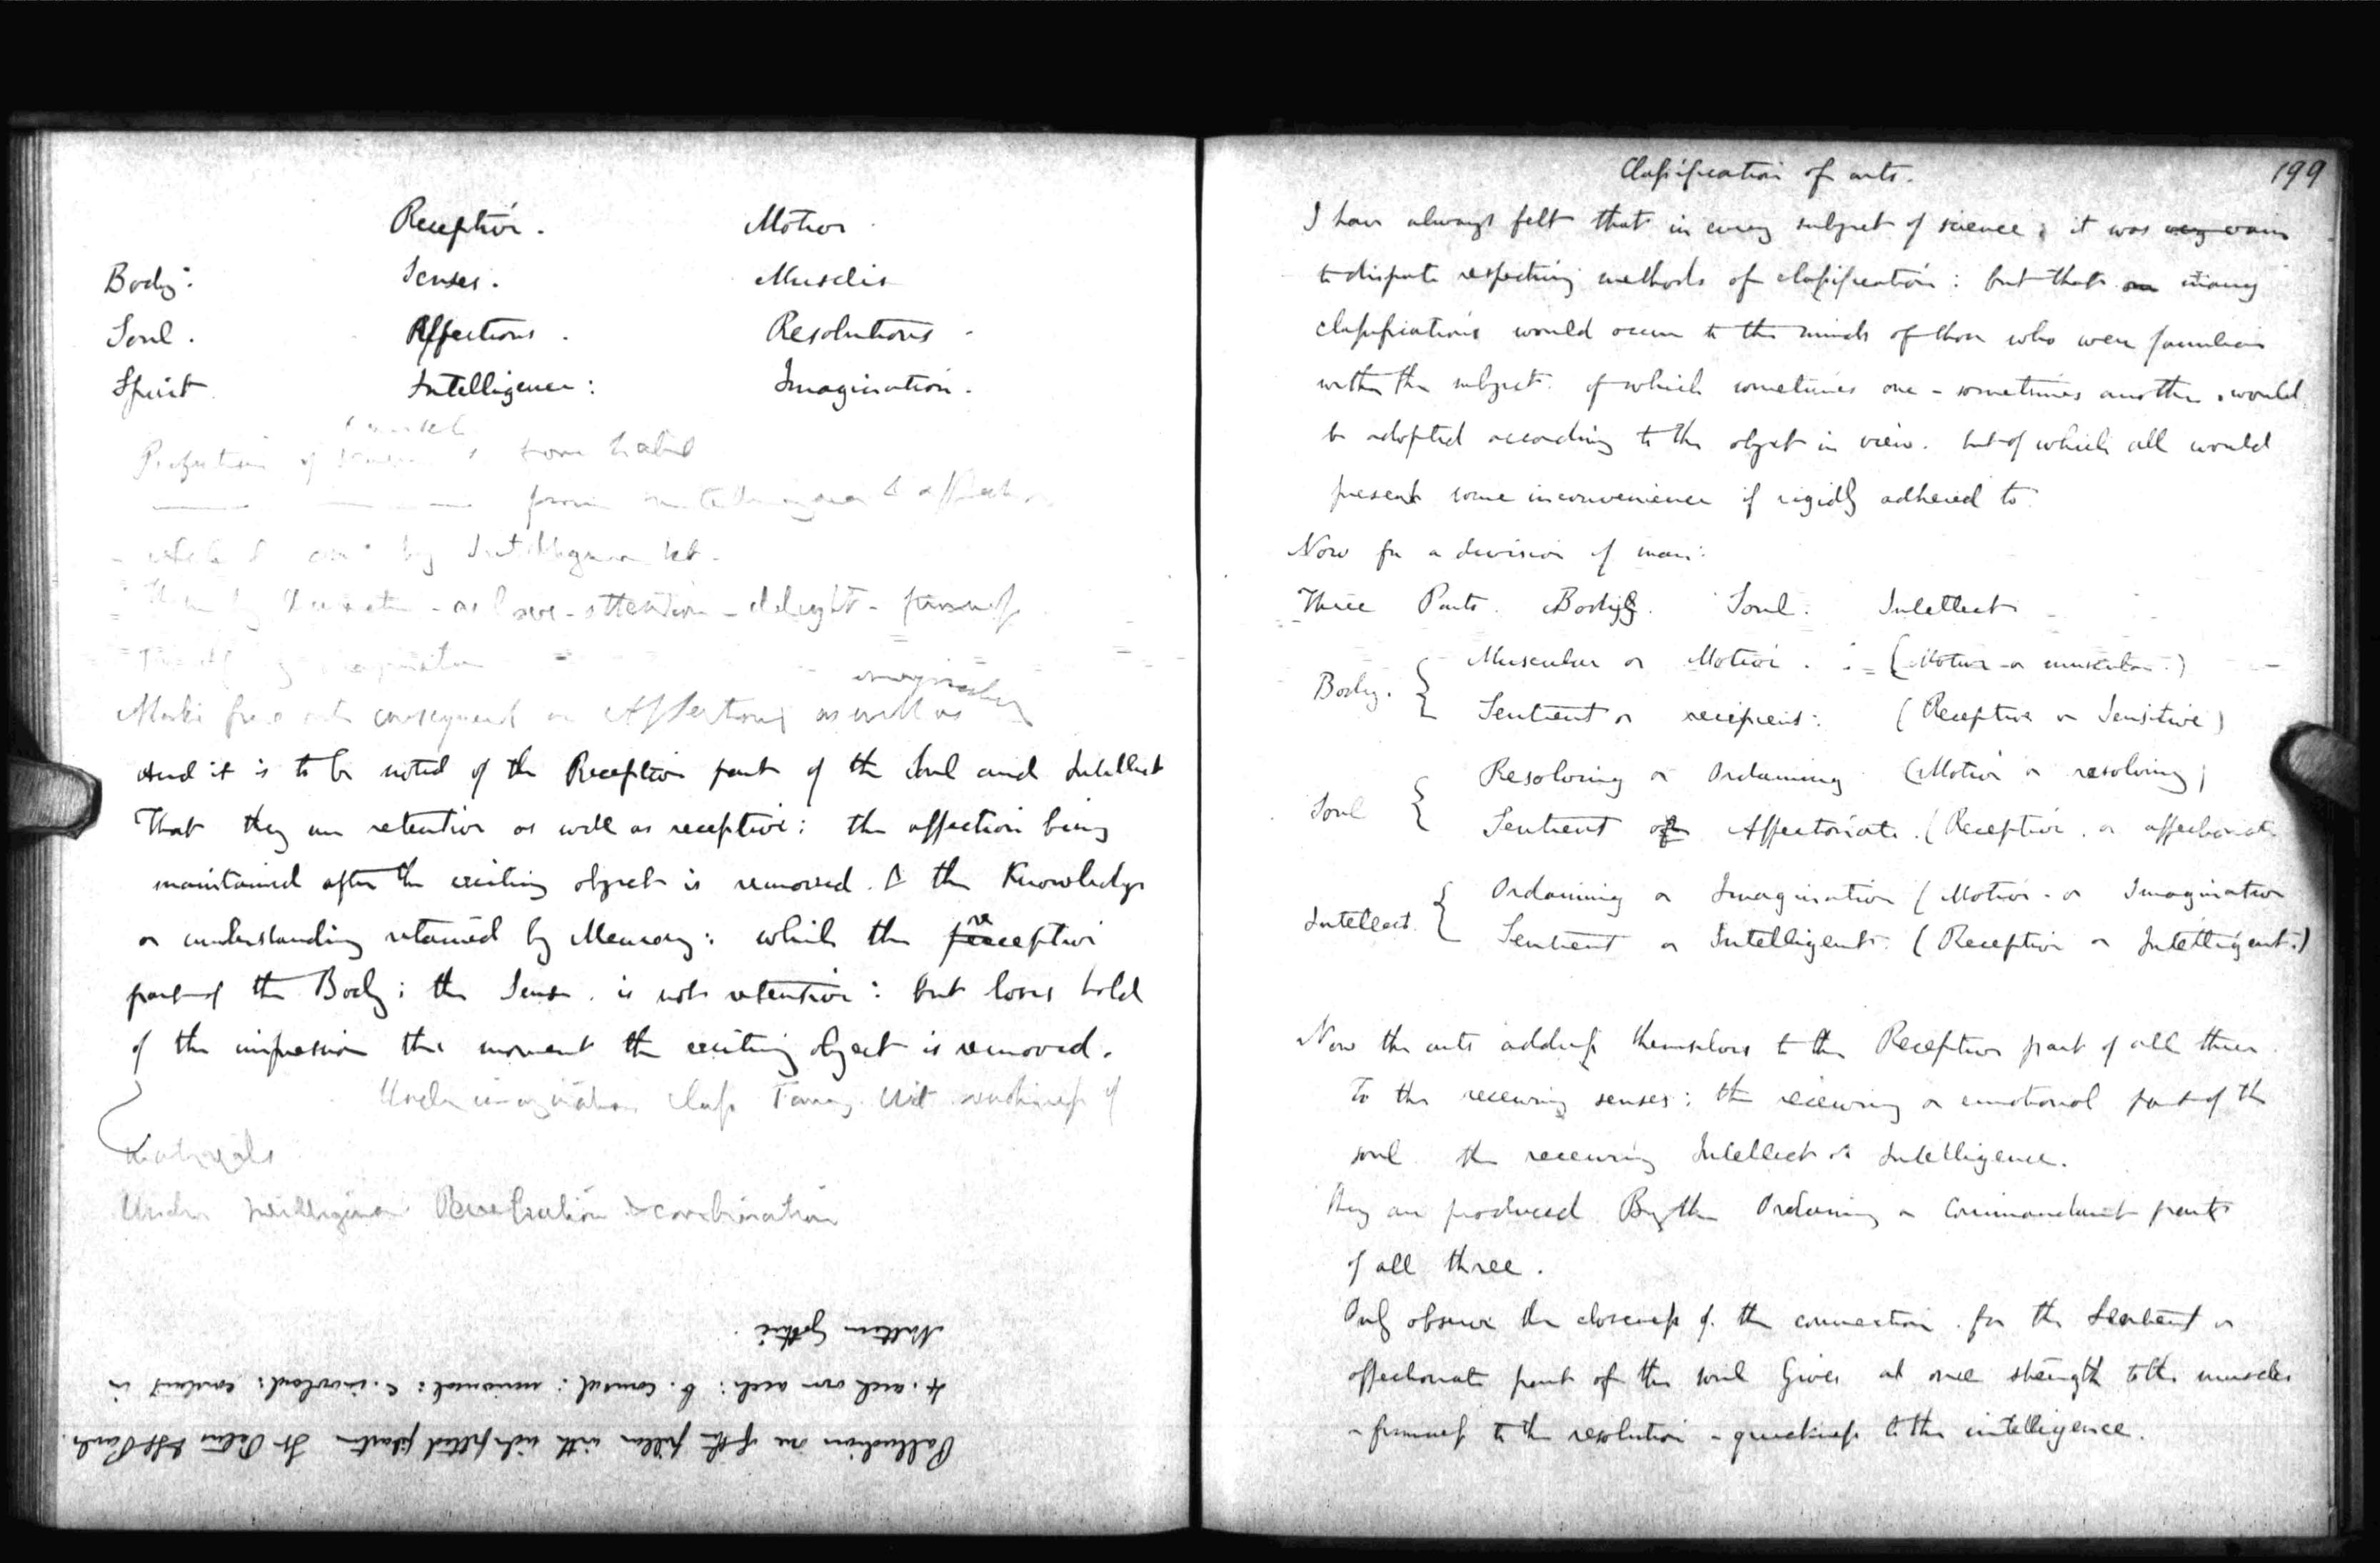 Receptive. Motive
Body: Senses. Muscles
Soul. Affections. Resolutions
Spirit Intelligence: Imagination.
from habit
from intelligence & affection
by Intelligence
as love - attention - delight -
imagination
consequent on Affections as well as
And it is to be noted of the Receptive part of the Soul and Intellect
That they are retentive as well as receptive: the affection being
maintained after the exciting object is removed. & the Knowledge
or understanding retained by Memory: while the receptive
part of the Body; the Sense. is not retentive: but loses hold
of the impression the moment the exciting object is removed.
Under imagination class Fancy. Wit readiness of
Materials
Under Intelligence Penetration & combination
Palladian one of the pillar with pilaster St Peters & St Pauls.
4. arch on arch: b. : c. : constant in
Northern Gothic
Classification of arts. 199
I have always felt that in every subject of science, it was very vain
to dispute respecting methods of classification: but that many
classifications would occur to the minds of those who were familiar
with the subject: of which sometimes one - sometimes another, would
be adopted according to the object in view. but of which all would
present some inconvenience if rigidly adhered to
Now for a division of man:
Three Parts. Body. Soul. Intellect
Muscular or Motive. : = (Motive or muscular.)
Body.
Sentient or recipient: (Receptive or Sensitive)
Resolving or Ordaining (Motive or resolving)
Soul
Sentient or Affectionate. (Receptive. or affectionate
Ordaining or Imagination (Motive - or Imaginative
Intellect.
Sentient or Intelligent. (Receptive or Intelligent.)
Now the arts address themselves to the Receptive part of all three.
To the receiving senses: the receiving or emotional part of the
soul the receiving Intellect or Intelligence.
They are produced By the Ordaining or Commandant parts
of all three.
Only observe the closeness of the connection. for the Sentient or
affectionate part of the soul Gives at once strength to the muscles
- firmness to the resolution - quickness to the intelligence.